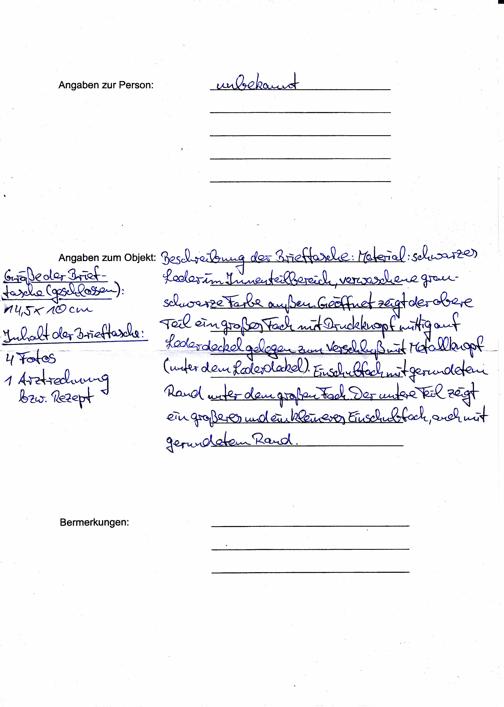 Angaben zur Person: unbekannt
Angaben zum Objekt: Beschreibung der Brieftasche: Material: schwarzes
Leder im Innenteilbereich, verwaschene grau-
schwarze Farbe außen. Geöffnet zeigt der obere
Teil ein großes Fach mit Druckknopf mittig auf
Lederdeckel gelegen zum Verschluß mit Metallknopf
(unter dem Lederdeckel). Einschubfach mit gerundetem
Rand unter dem großen Fach. Der untere Teil zeigt
ein größeres und ein kleineres Einschubfach, auch mit
gerundetem Rand.
Größe der Brief-
tasche (geschlossen):
14,5 x 10 cm
Inhalt der Brieftasche:
4 Fotos
1 Arztrechnung
bzw. Rezept
Bermerkungen: